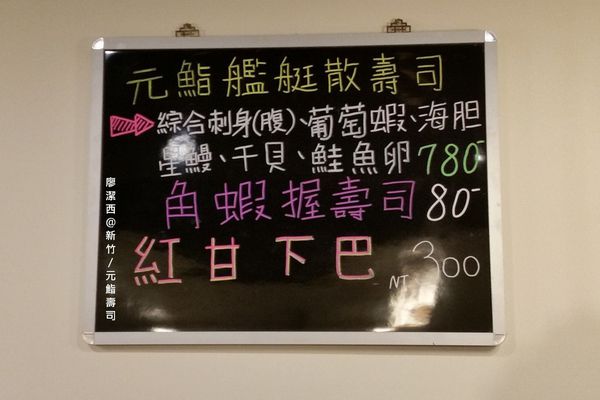 元鮨艦艇散壽司
綜合刺身(腹)、葡萄蝦、海胆
星鰻、干貝、鮭魚卵780-
角蝦握壽司80-
紅甘下巴 NT300
廖潔西@新竹/元鮨壽司